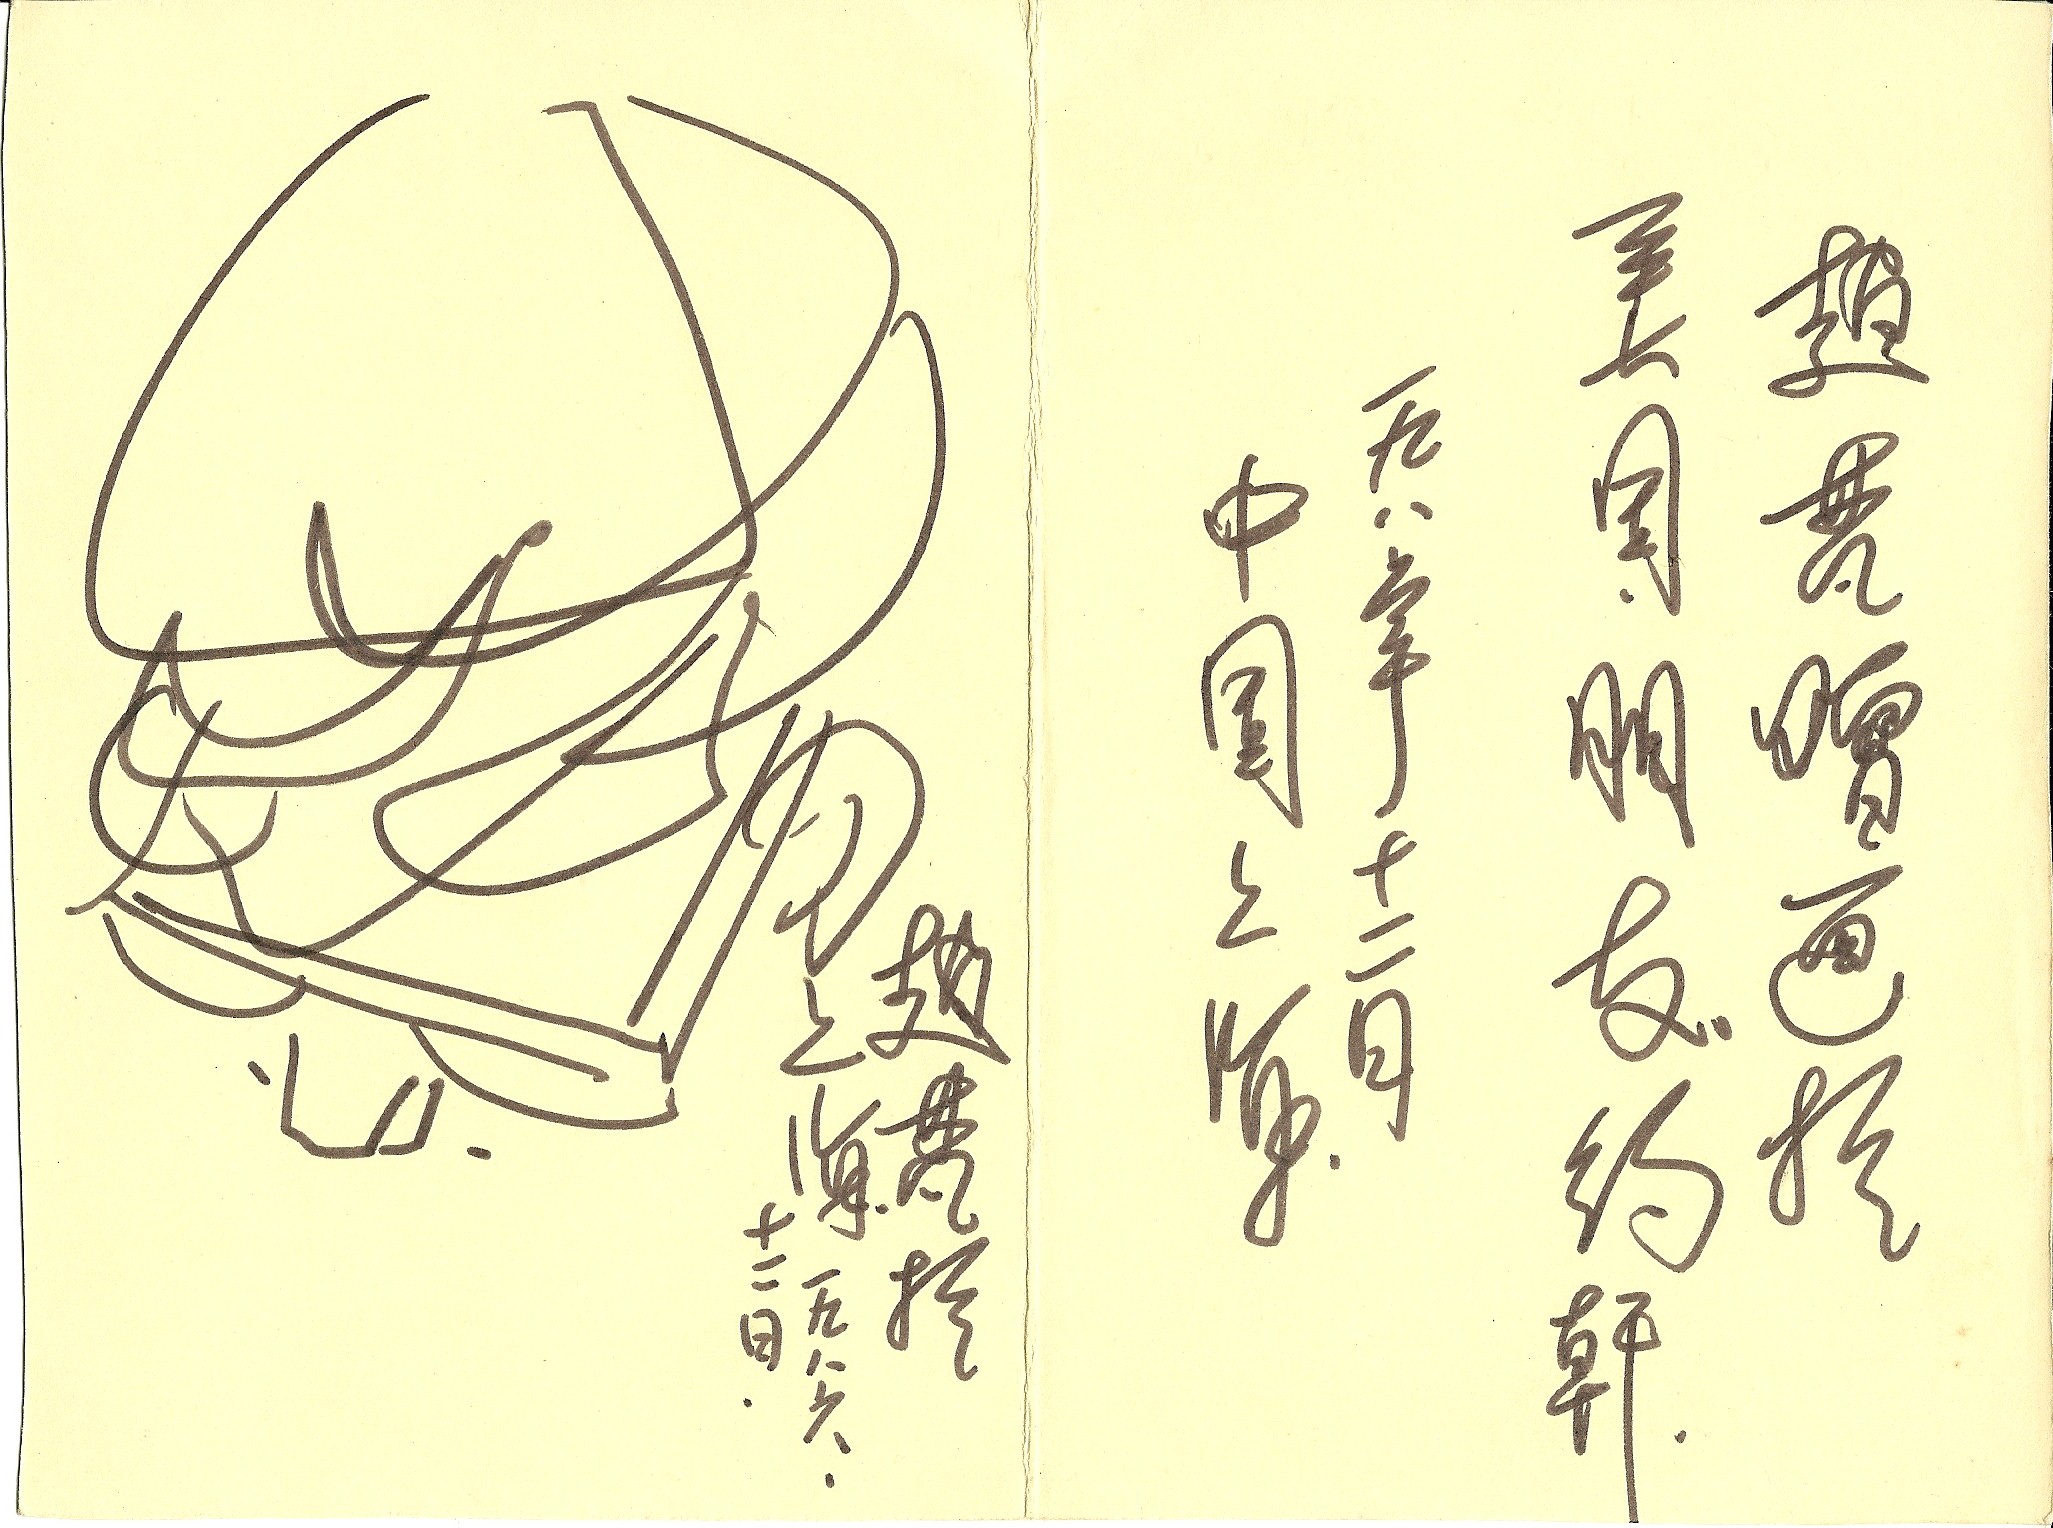 趙赠画於
美国朋友约翰.
一九八六年十二月
中国上海.
趙於
上海.一九八六.
十二月.